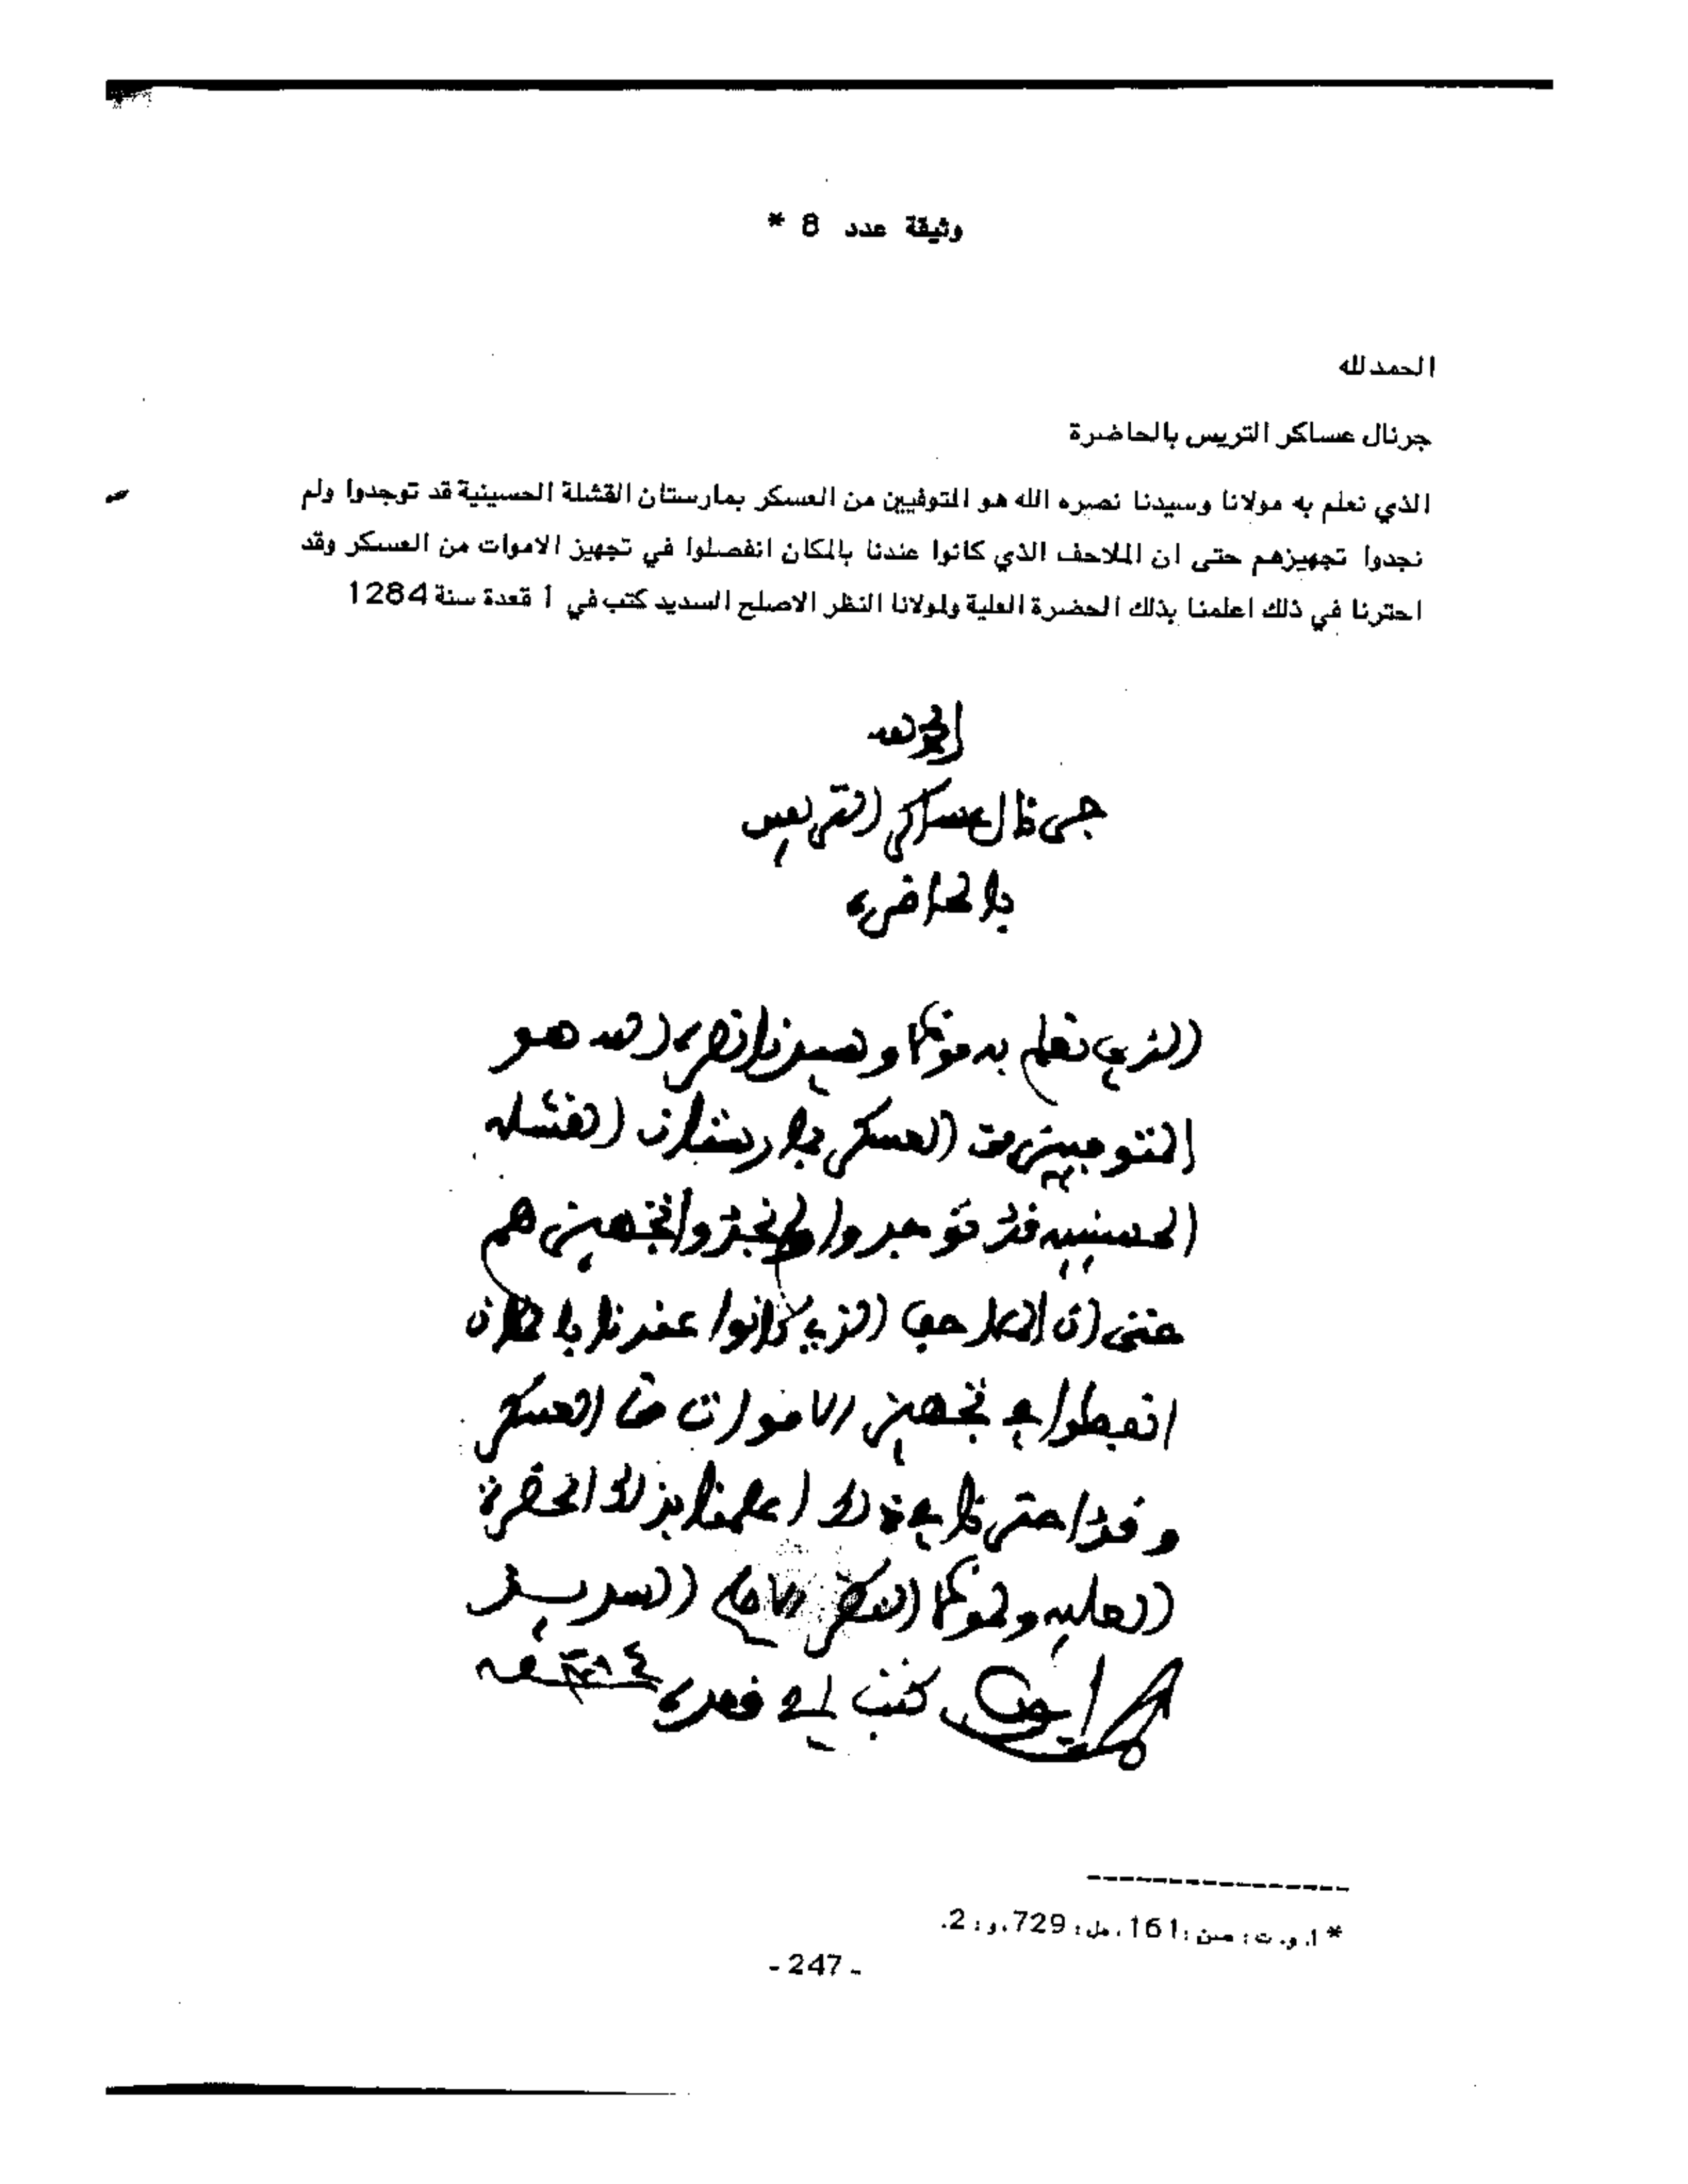 وثيقة عدد 8 *
الحمدلله
جرنال عساكر التريس بالحاضرة
الذي نعلم به مولانا وسيدنا نصره الله هو المتوفيين من العسكر بمارستان القشلة الحسينية قد توجدوا ولم
نجدوا تجهيزهم حتى ان الملاحف الذي كانوا عندنا بالمكان انفصلوا في تجهيز الاموات من العسكر وقد
احترنا في ذلك اعلمنا بذلك الحضرة العلية ولمولانا النظر الاصلح السديد كتب في 1 قعدة سنة 1284
الحمد لله
جرنال عساكر التريس
بالحاضره
الذي نعلم به مولانا وسيدنا نصره الله هو
المتوفيين من العسكر بمارستان القشله
الحسينيه قد توجدوا ولم نجدوا تجهيزهم
حتى ان الملاحف الذي كانوا عندنا بالمكان
انفصلوا في تجهيز الاموات من العسكر
وقد احترنا في ذلك اعلمنا بذلك الحضرة
العليه ولمولانا النظر الاصلح السديد
كتب في 1 قعده سنة ١٢٨٤
* ا. و. ت : صن : 161، مل : 729، و : 2.
- 247 -